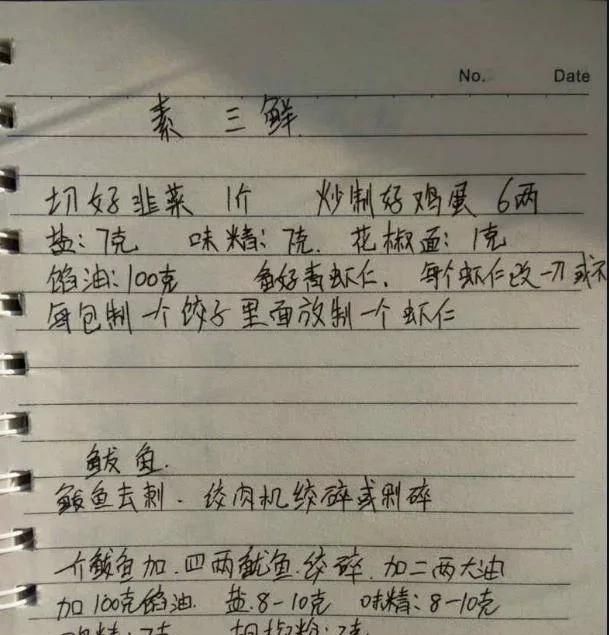 No. Date
素 三 鲜
切好韭菜 1斤 炒制好鸡蛋 6两
盐:7克 味精:7克. 花椒面:1克
馅油:100克 备好青虾仁. 每个虾仁改一刀或不
每包制一个饺子里面放制一个虾仁
鲅鱼.
鲅鱼去刺. 绞肉机绞碎或剁碎
一斤鲅鱼加.四两鱿鱼.绞碎.加二两大油
加100克馅油. 盐.8-10克 味精:8-10克
鸡精:7克 胡椒粉:7克